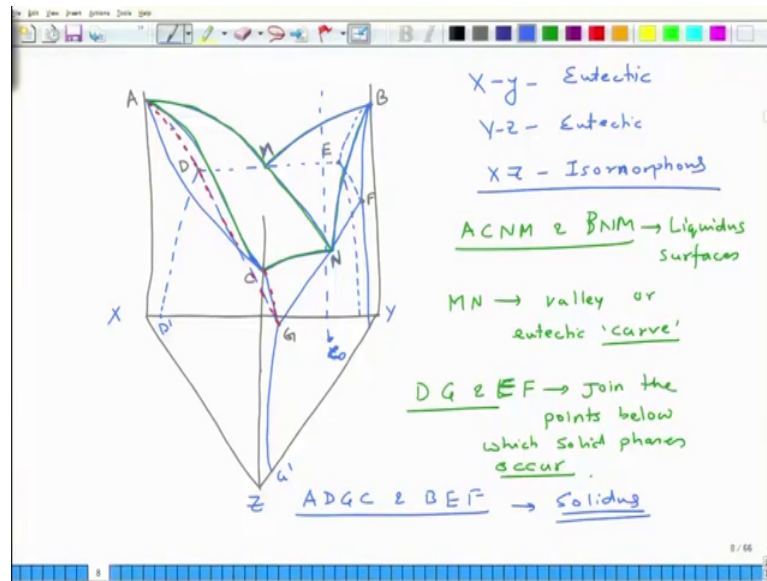 File Edit View Insert Actions Tools Help
A
B
M
D
E
F
C
N
X
D'
G
Y
G'
Z
X-y - Eutectic
Y-z - Eutectic
XZ - Isormorphous
ACNM & BNM → Liquidus
surfaces
MN → valley or
eutechic 'carve'
DG & EF → Join the
points below
which solid phases
occur.
ADGC & BEF → Solidus
8/66
8